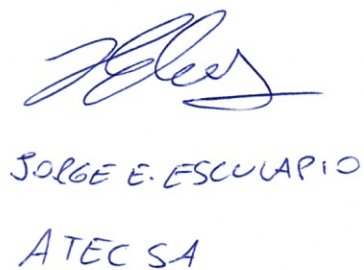 JORGE E. ESCULAPIO
ATEC SA